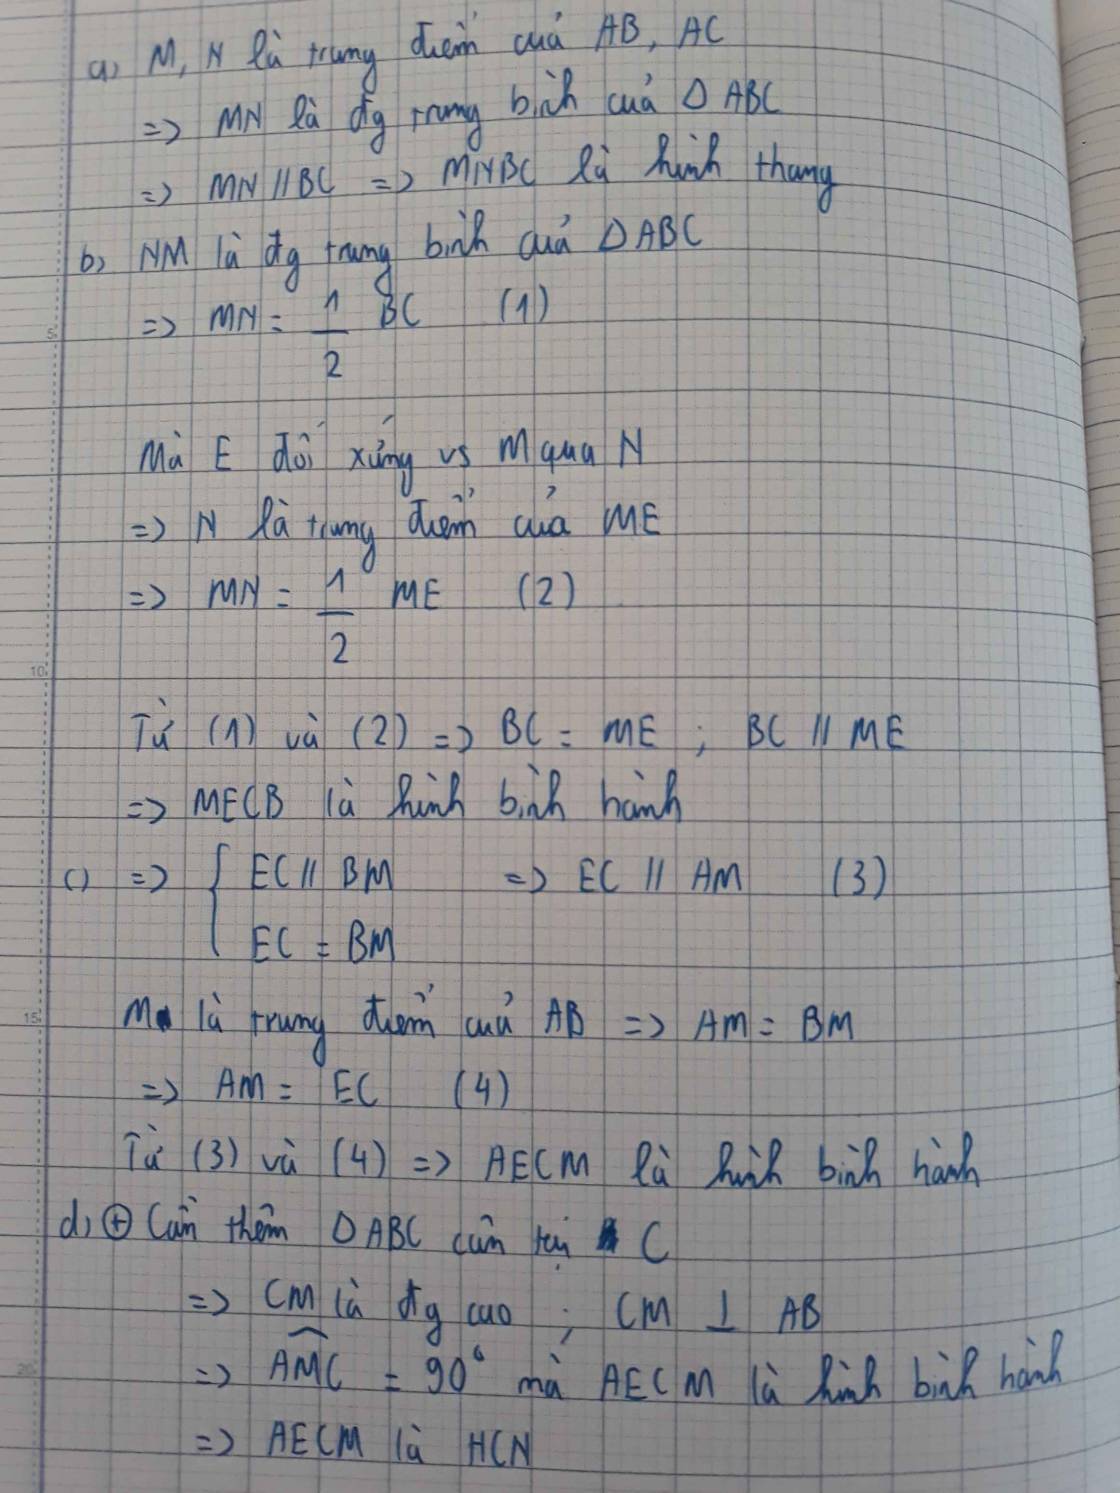 a) M, N là trung điểm của AB, AC
=> MN là đg trung bình của Δ ABC
=> MN // BC => MNBC là hình thang
b) NM là đg trung bình của Δ ABC
=> MN = 1/2 BC (1)
5
Mà E đối xứng vs M qua N
=> N là trung điểm của ME
=> MN = 1/2 ME (2)
10
Từ (1) và (2) => BC = ME ; BC // ME
=> MECB là hình bình hành
c) => { EC // BM => EC // AM (3)
EC = BM
15
M là trung điểm của AB => AM = BM
=> AM = EC (4)
Từ (3) và (4) => AECM là hình bình hành
d) ⊕ Cần thêm Δ ABC cân tại C
=> CM là đg cao ; CM ⊥ AB
20
=> \widehat{AMC} = 90° mà AECM là hình bình hành
=> AECM là HCN